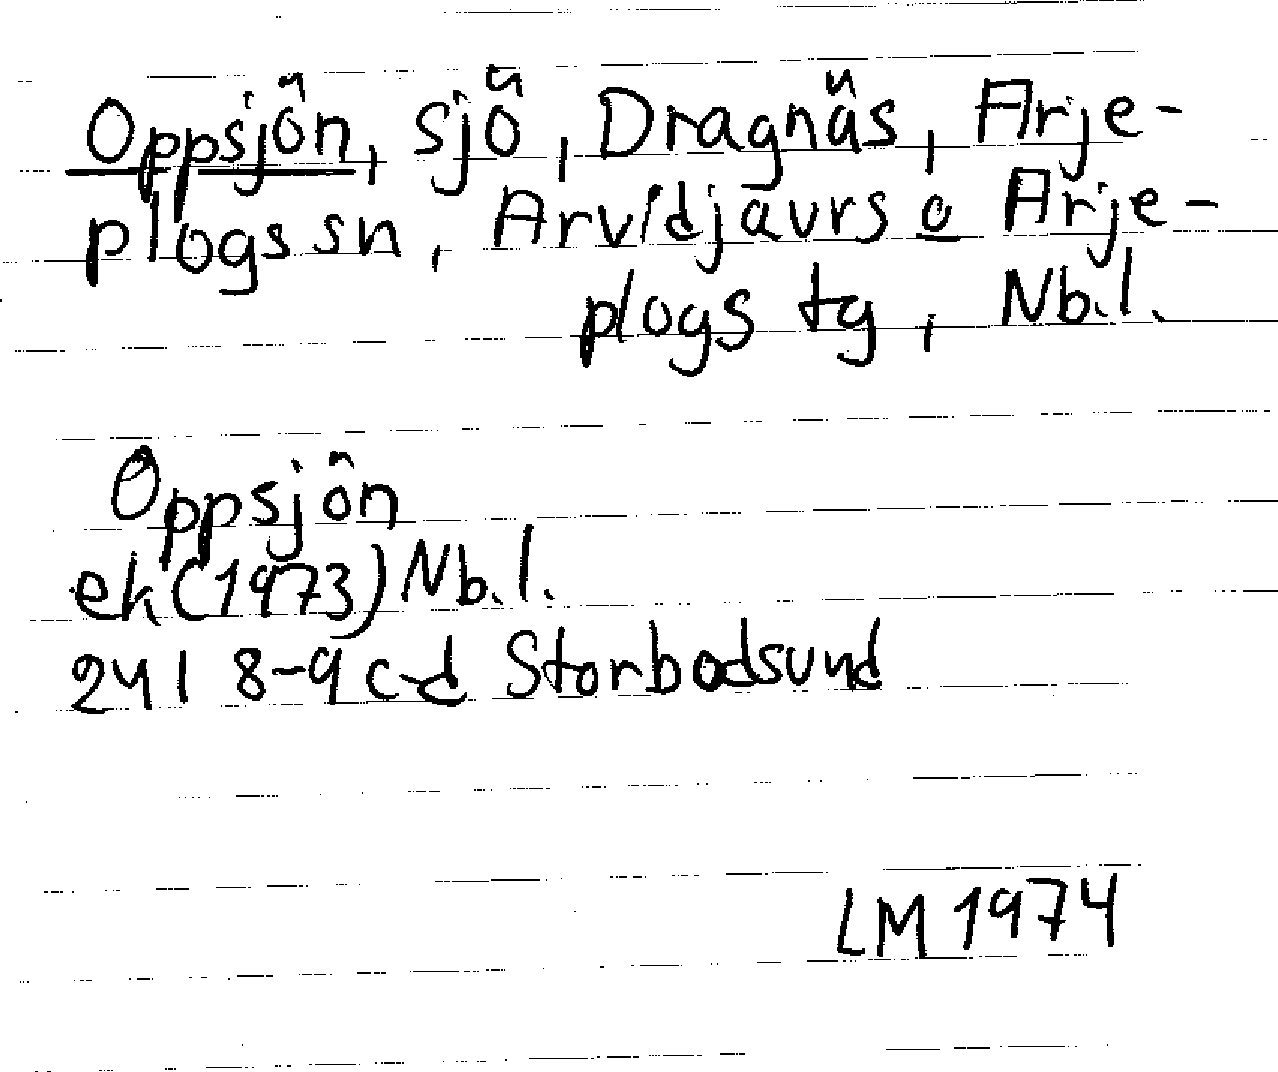 Oppsjön, sjö, Dragnäs, Arje-
plogs sn, Arvidjaurs o Arje-
plogs tg, Nb.l.
Oppsjön
ek (1973) Nb.l.
24I 8-9 c-d Storbodsund
LM 1974